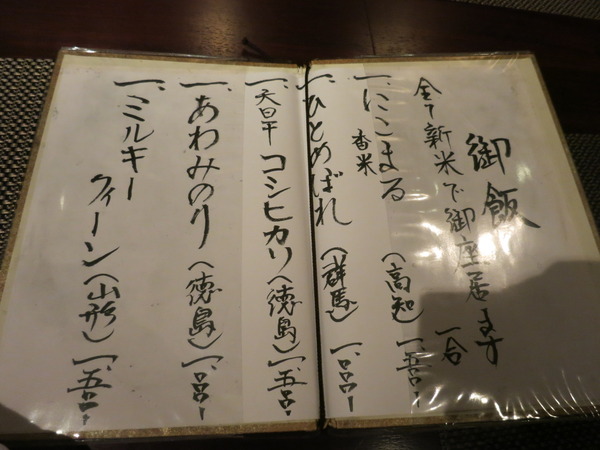 御飯
全て新米で御座居ます
一合
一、にこまる 香米 (高知) 一、五〇〇ー
一、ひとめぼれ (群馬) 一、〇〇〇ー
一、天日干 コシヒカリ (徳島) 一、五〇〇ー
一、あわみのり (徳島) 一、〇〇〇ー
一、ミルキー
クィーン (山形) 一、五〇〇ー